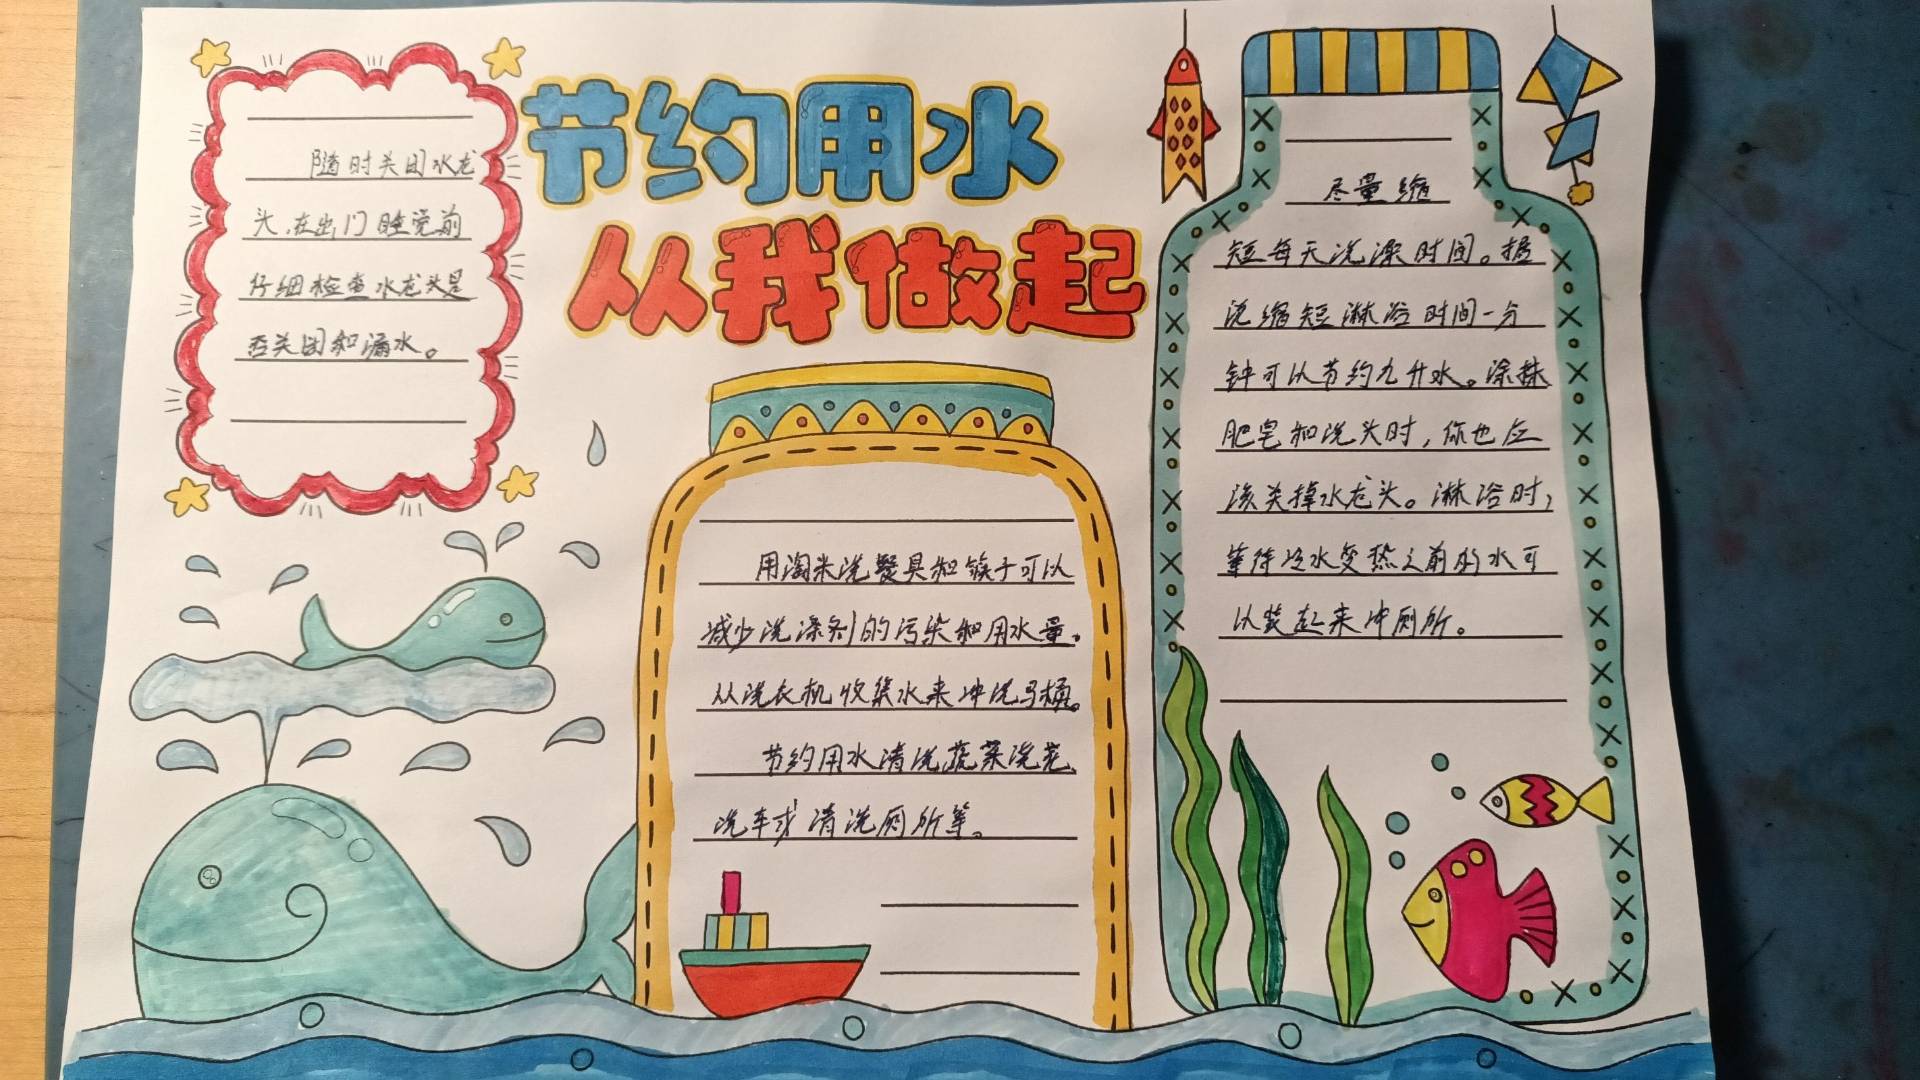 节约用水
从我做起
随时关闭水龙
头,在出门睡觉前
仔细检查水龙头是
否关闭和漏水。
用淘米洗餐具和筷子可以
减少洗涤剂的污染和用水量。
从洗衣机收集水来冲洗马桶。
节约用水清洗蔬菜浇花、
洗车或清洗厕所等。
尽量缩
短每天洗澡时间。据
说缩短淋浴时间一分
钟可以节约九升水。涂抹
肥皂和洗头时,你也应
该关掉水龙头。淋浴时,
等待冷水变热之前的水可
以装起来冲厕所。